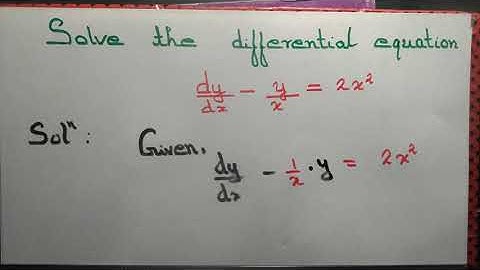 Solve the differential equation
dy/dx - y/x = 2x²
Solⁿ: Given,
dy/dx - 1/x · y = 2x²